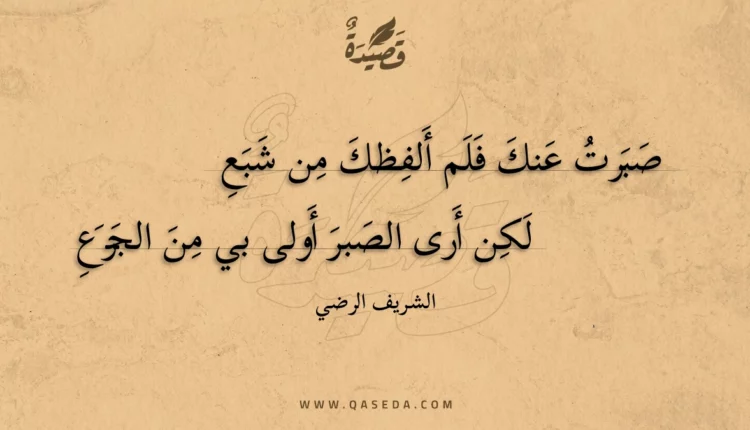 قَصِيدَةٌ
صَبَرتُ عَنكَ فَلَم أَلفِظكَ مِن شَبَعِ
لَكِن أَرى الصَبرَ أَولى بي مِنَ الجَوَعِ
الشريف الرضي
WWW.QASEDA.COM